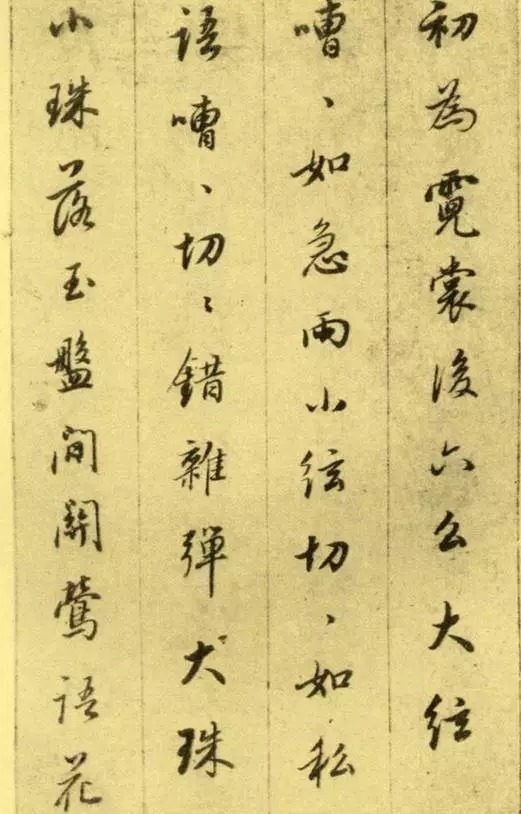 初為霓裳後六么大絃
嘈、如急雨小絃切、如私
語嘈、切、錯雜彈大珠
小珠落玉盤間關鶯語花